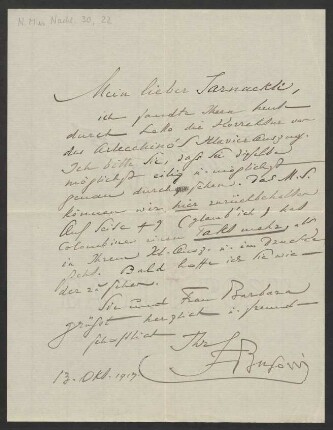 N. Mus. Nachl. 30, 22
Mein lieber Jarnach,
ich sandte Ihnen heut
durch Lello die Korrektur von
des Arlecchino's Klavierauszug.
Ich bitte Sie, daß Sie dieselbe
möglichst eilig u. möglichst
genau durchsehen. Das M.S.
können wir hier zurückbehalten
Auf Seite 49 ich, hat
Colombine einen Takt mehr, als
in Ihrem Kl. Ausz. u. im Drucke
steht. Bald hoffe ich Sie wie-
der zu sehen.
Sie und Frau Barbara
grüßt herzlich u. freund-
schaftlich
Ihr
F Busoni
13. Okt. 1917.